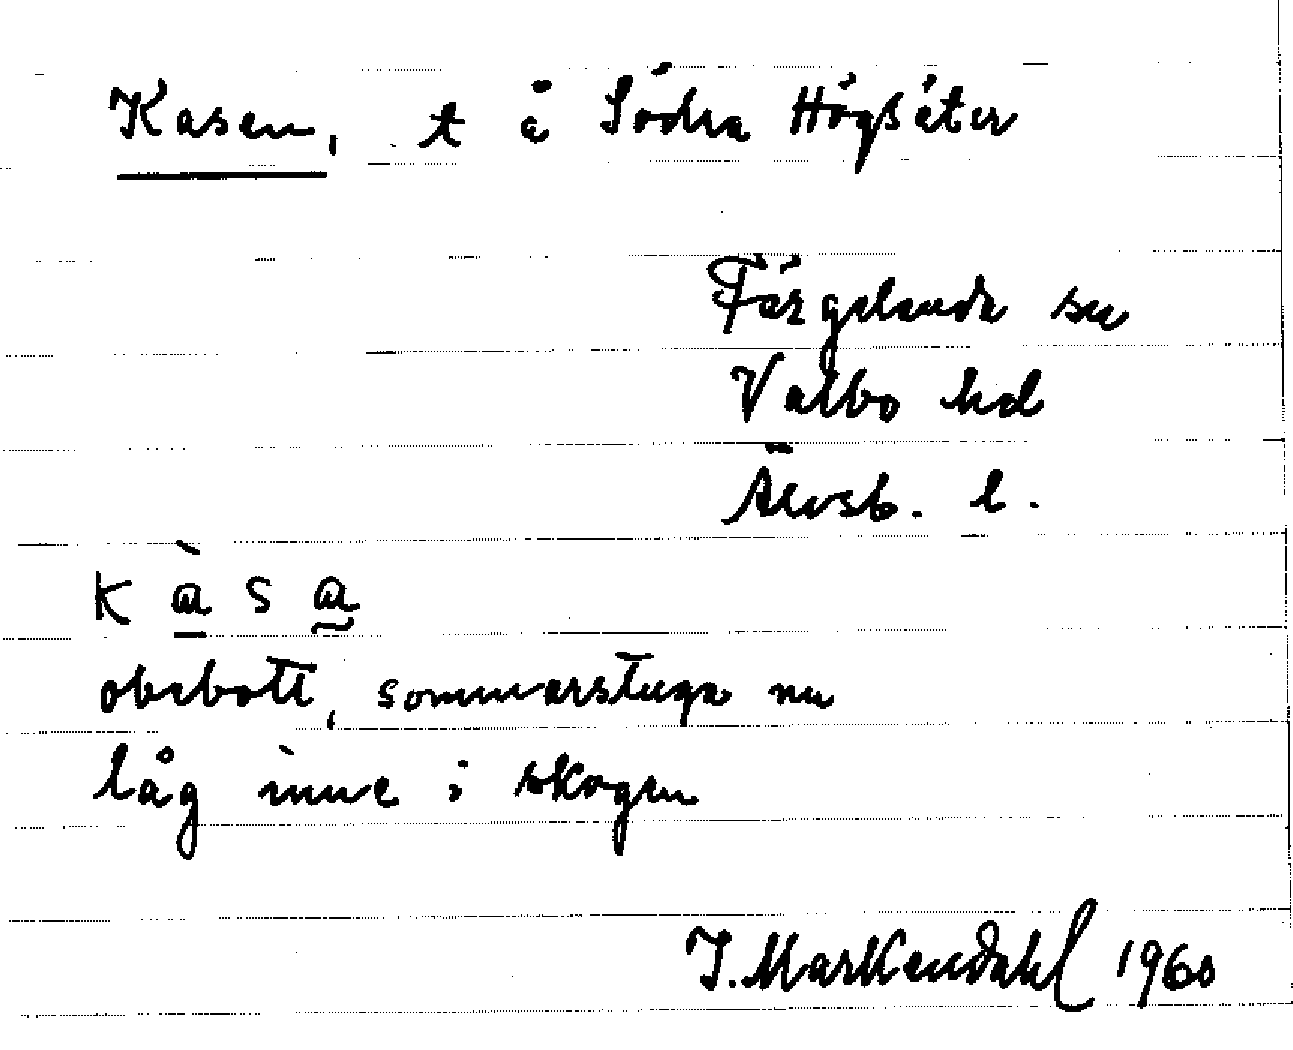 Kasen, t å Södra Högsäter
Färgelanda sn
Valbo hd
Älvsb. l.
k à s a
obebott, sommarstuga nu
låg inne i skogen
J. Markendahl 1960